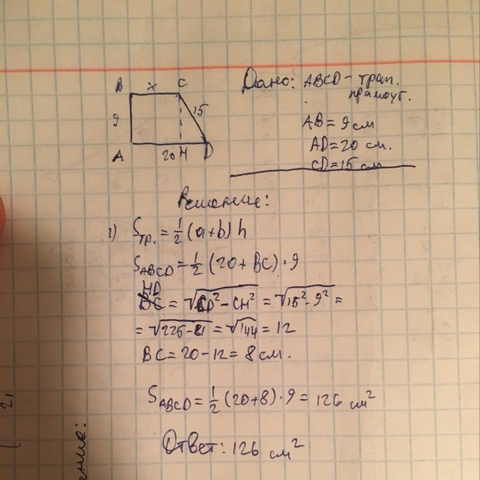 B x C
9
15
A 20 H D
Дано: ABCD - трап.
прямоуг.
AB = 9 см
AD = 20 см.
CD = 15 см
Решение:
1) Sтр. = 1/2 (a+b) h
SABCD = 1/2 (20 + BC) · 9
HD = √CD² - CH² = √15² - 9² =
= √225 - 81 = √144 = 12
BC = 20 - 12 = 8 см.
SABCD = 1/2 (20+8) · 9 = 126 см²
Ответ: 126 см²
21
ение: